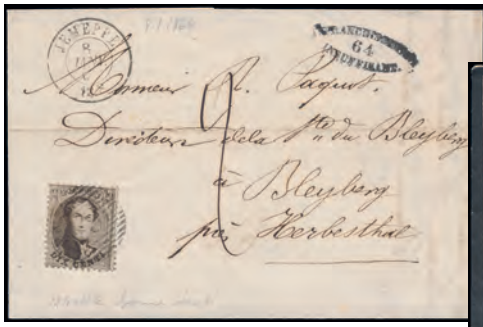 JEMEPPE
8
JANV
AFFRANCHISSEMENT
64
INSUFFISANT.
Monsieur R. Paquot.
Directeur de la Sté du Bleyberg
à
Bleyberg
près Herbesthal
2
DIX CENTS